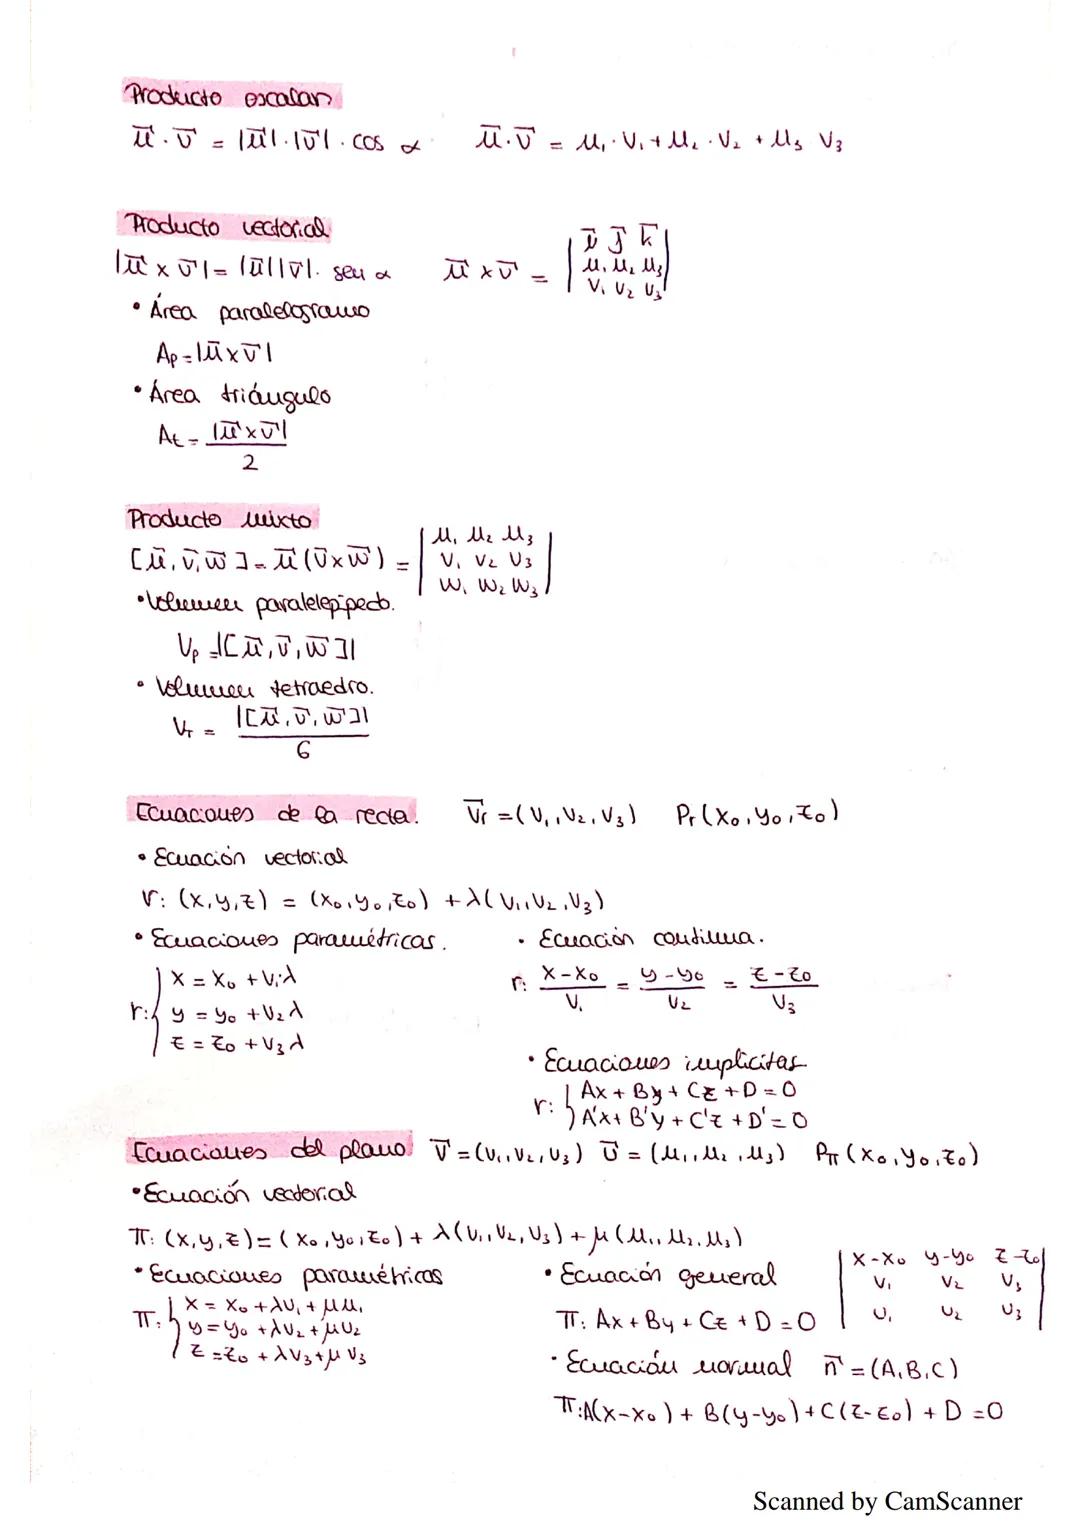 Producto escalar
u⃗ · v⃗ = |u⃗|·|v⃗| · cos α   u⃗·v⃗ = u₁·v₁ + u₂·v₂ + u₃ v₃
Producto vectorial
|u⃗ x v⃗| = |u⃗||v⃗|· sen α   u⃗ x v⃗ = | i⃗ j⃗ k⃗ |
| u₁ u₂ u₃ |
| v₁ v₂ v₃ |
• Área paralelogramo
Ap = |u⃗ x v⃗|
• Área triángulo
At = |u⃗ x v⃗|
2
Producto mixto
[u⃗, v⃗, w⃗] = u⃗ (v⃗ x w⃗) = | u₁ u₂ u₃ |
| v₁ v₂ v₃ |
| w₁ w₂ w₃ |
• Volumen paralelepípedo.
Vp = |[u⃗, v⃗, w⃗]|
• Volumen tetraedro.
VT = |[u⃗, v⃗, w⃗]|
6
Ecuaciones de la recta.   v⃗r = (v₁, v₂, v₃)   Pr (x₀, y₀, z₀)
• Ecuación vectorial
r: (x, y, z) = (x₀, y₀, z₀) + λ(v₁, v₂, v₃)
• Ecuaciones paramétricas.
r: { x = x₀ + v₁λ
y = y₀ + v₂λ
z = z₀ + v₃λ
• Ecuación continua.
r: x-x₀ / v₁ = y-y₀ / v₂ = z-z₀ / v₃
• Ecuaciones implícitas
r: { Ax + By + Cz + D = 0
A'x + B'y + C'z + D' = 0
Ecuaciones del plano   v⃗ = (v₁, v₂, v₃)   u⃗ = (u₁, u₂, u₃)   Pπ (x₀, y₀, z₀)
• Ecuación vectorial
π: (x, y, z) = (x₀, y₀, z₀) + λ(v₁, v₂, v₃) + μ (u₁, u₂, u₃)
• Ecuaciones paramétricas
π: { x = x₀ + λv₁ + μu₁
y = y₀ + λv₂ + μu₂
z = z₀ + λv₃ + μ v₃
• Ecuación general
π: Ax + By + Cz + D = 0
| x-x₀ y-y₀ z-z₀ |
| v₁ v₂ v₃ |
| u₁ u₂ u₃ |
• Ecuación normal   n⃗ = (A, B, C)
π: A(x-x₀) + B(y-y₀) + C(z-z₀) + D = 0
Scanned by CamScanner